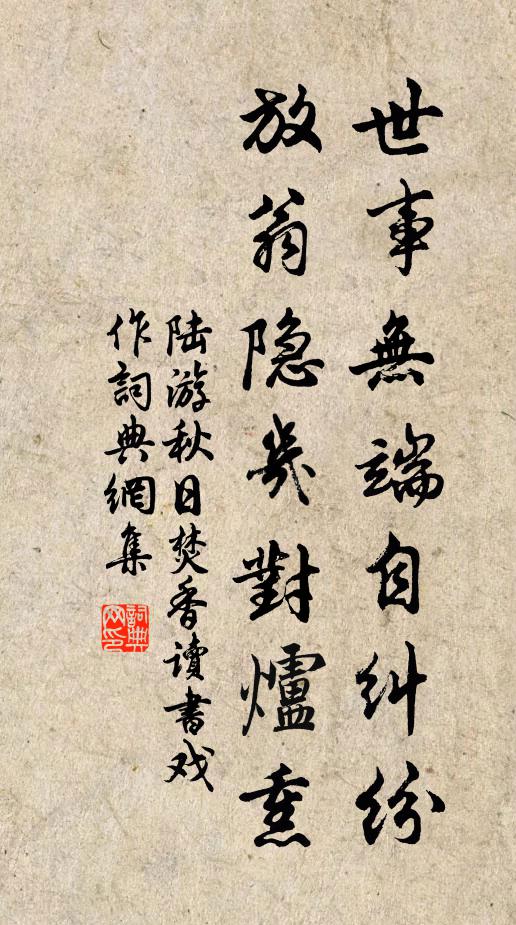 世事無端自糾紛
放翁隐几對爐熏
陆游秋日焚香讀書戏
作詞典網集
詞典网印